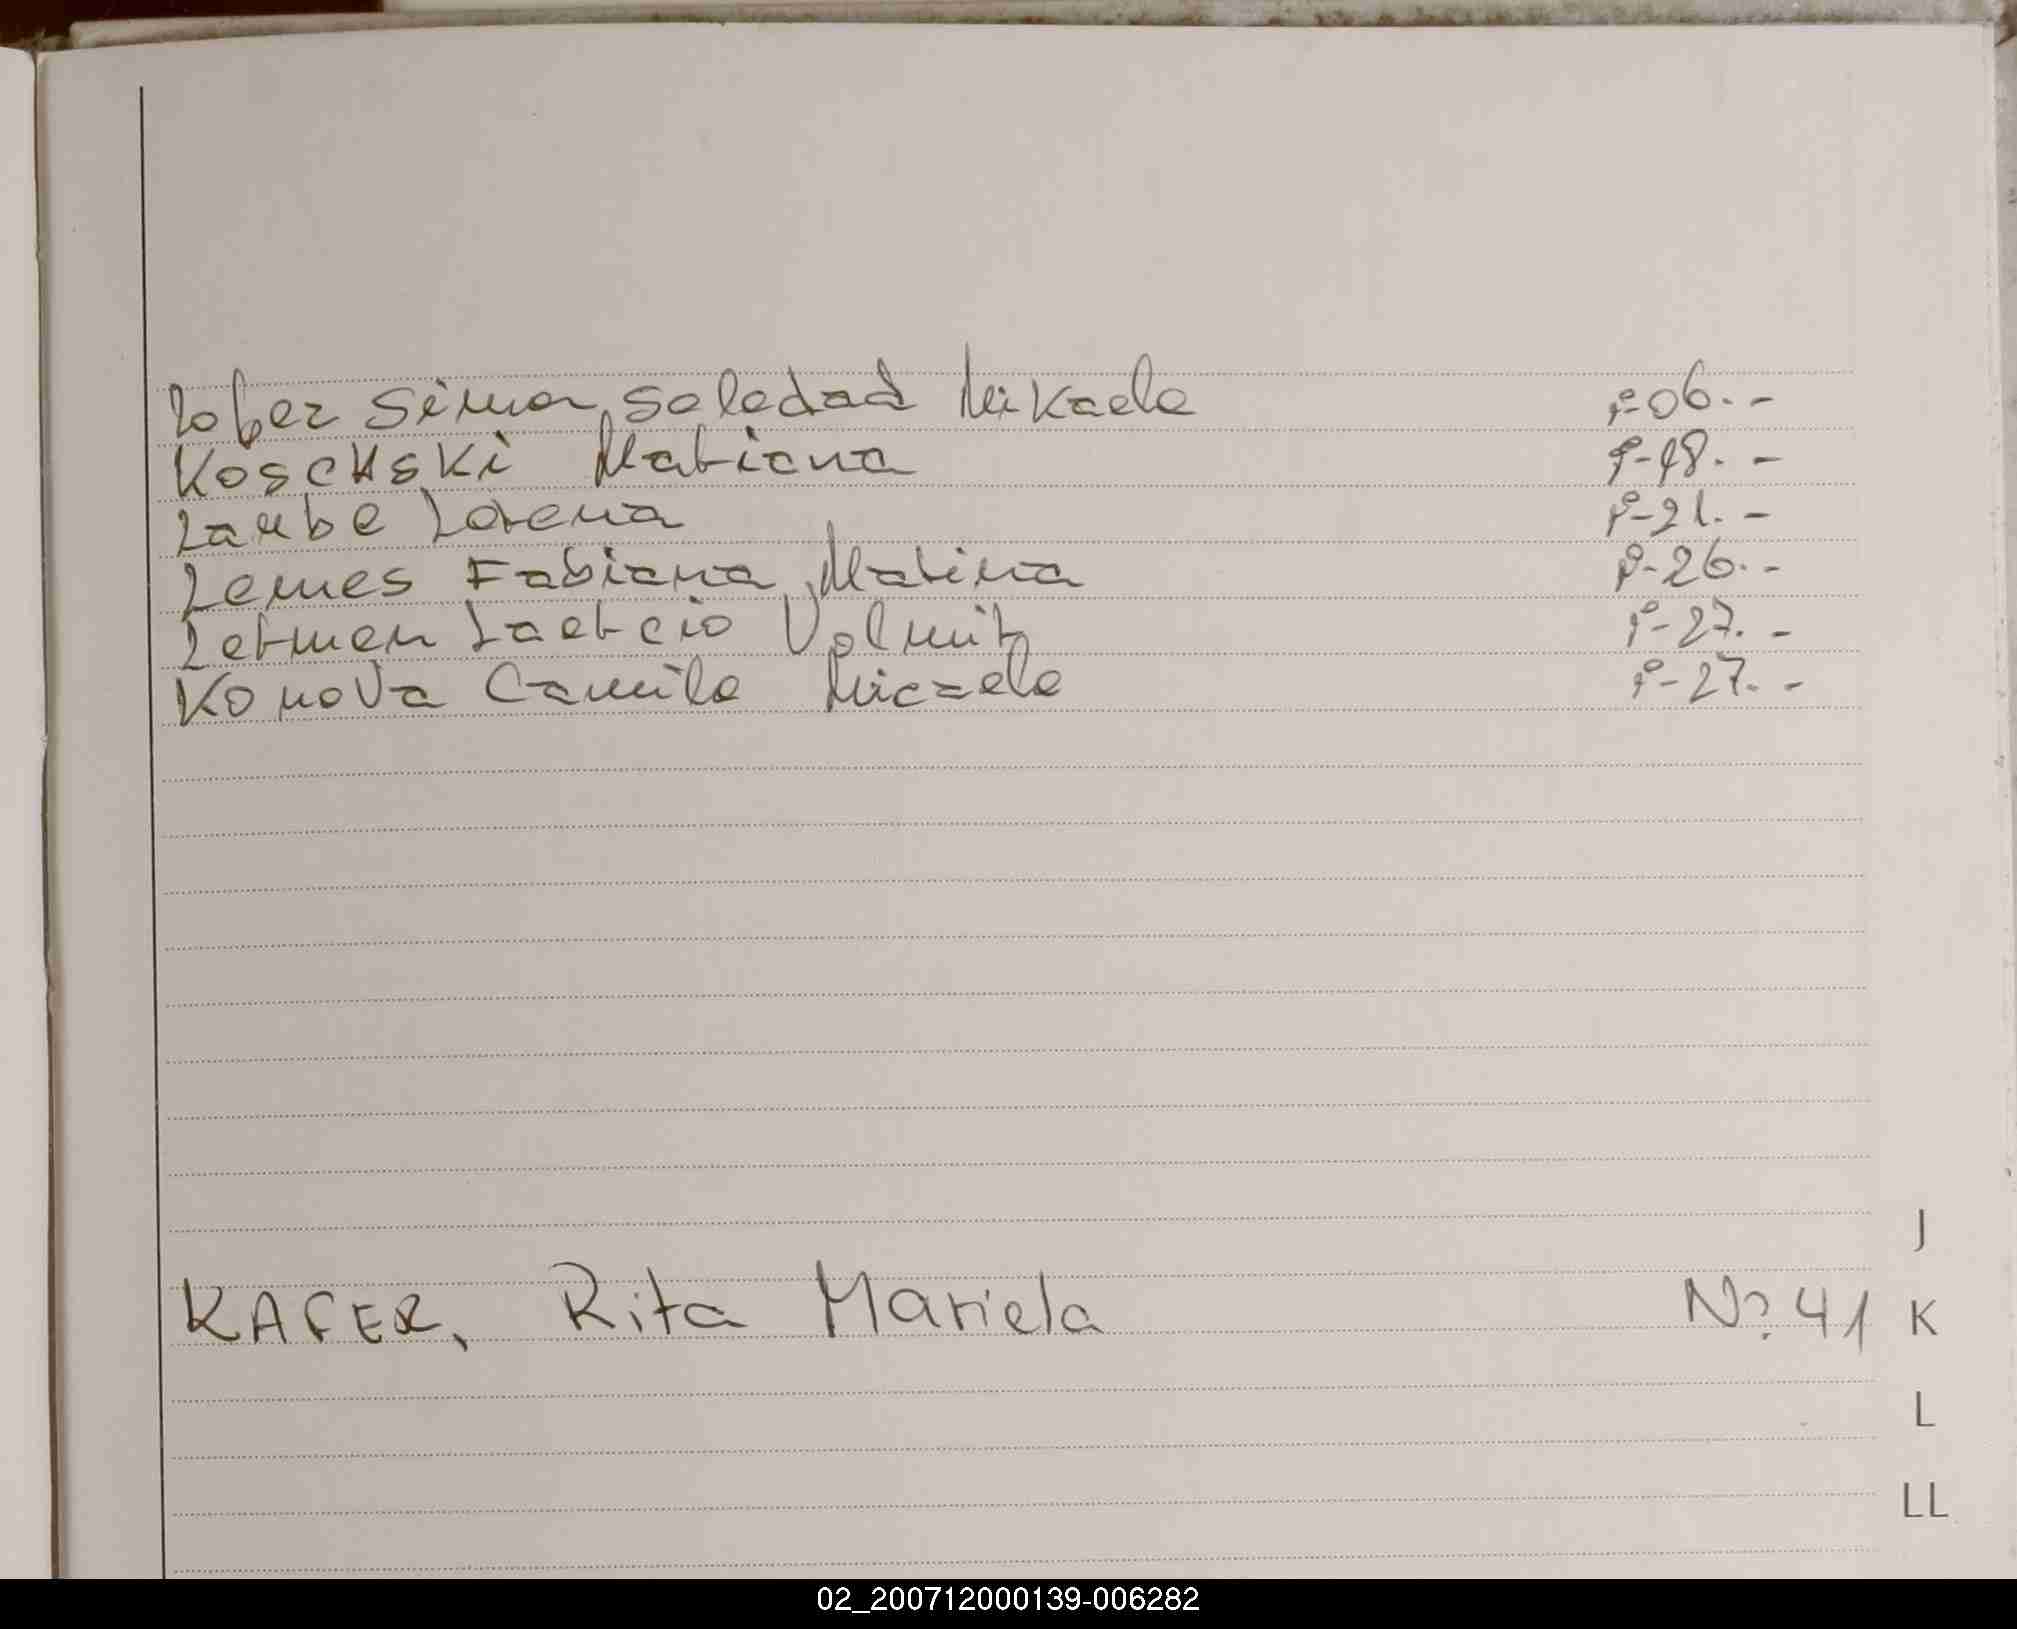 Lopez Simon, Soledad Mikaela fº-06.-
Koschski Mariana fº-18.-
Laube Lorena fº-21.-
Lemes Fabiana Marina fº-26.-
Lermen Laercio Volmir fº-27.-
Konova Camila Micaela fº-27.-
J
KAFER, Rita Mariela Nº. 41
K
L
LL
02_200712000139-006282